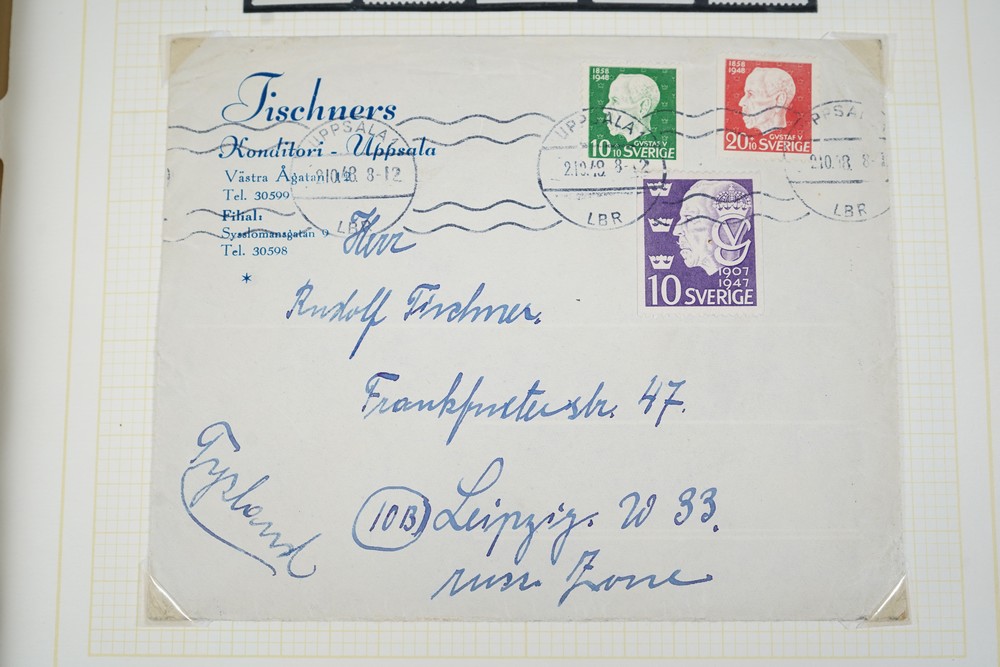 Tischners
Konditori - Uppsala
Västra Ågatan 12
Tel. 30599
Filial:
Sysslomansgatan 9
Tel. 30598
UPPSALA
2.10.48. 8-12
LBR
1858
1948
GUSTAF V
10+10 SVERIGE
1858
1948
GUSTAF V
20+10 SVERIGE
UPPSALA
2.10.48. 8-12
LBR
UPPSALA
2.10.48. 8-1
LBR
1907
1947
10 SVERIGE
Herr
Rudolf Tischner.
Frankfurterstr. 47.
Tyskland
(10B) Leipzig. W 33.
russ. Zone